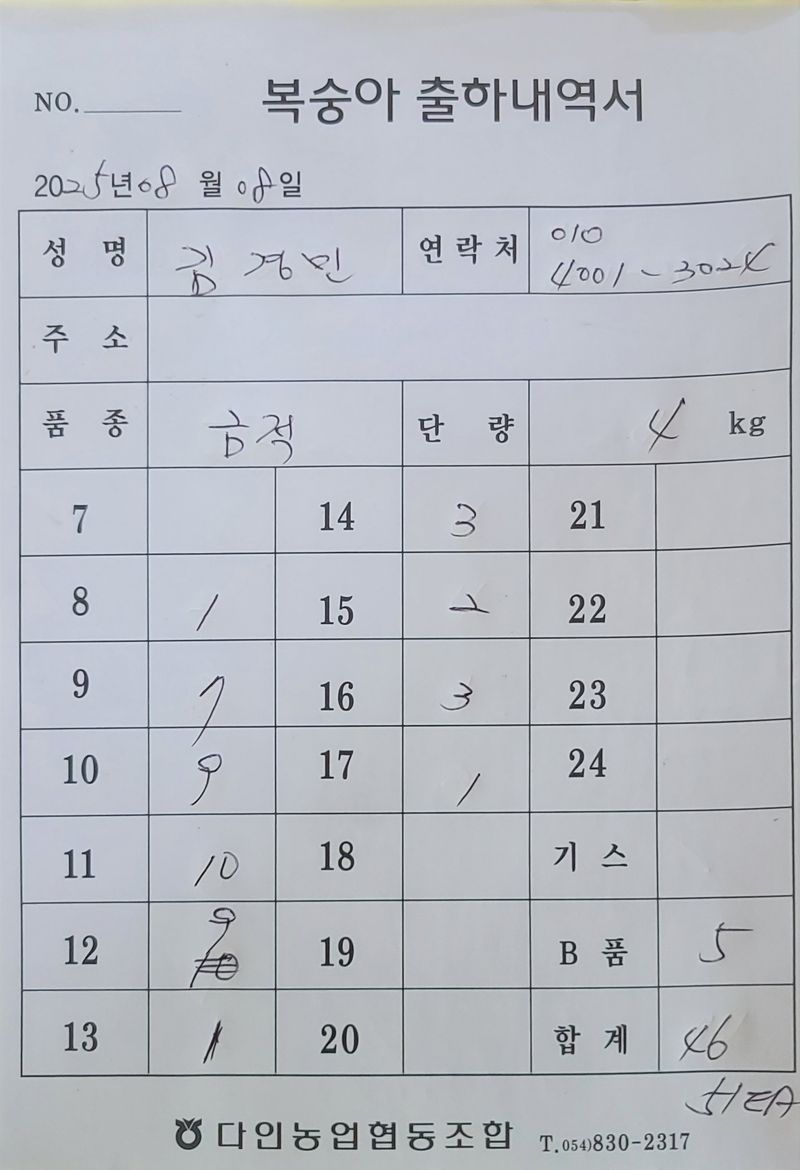 NO.
복숭아 출하내역서
2025년 08 월 08일
성 명 김경민 연락처 010 4001-3024
주 소
품 종 금적 단 량 4 kg
7 14 3 21
8 1 15 2 22
9 7 16 3 23
10 9 17 1 24
11 10 18 기 스
12 9 19 B 품 5
13 1 20 합 계 46
다인농업협동조합 T.054)830-2317